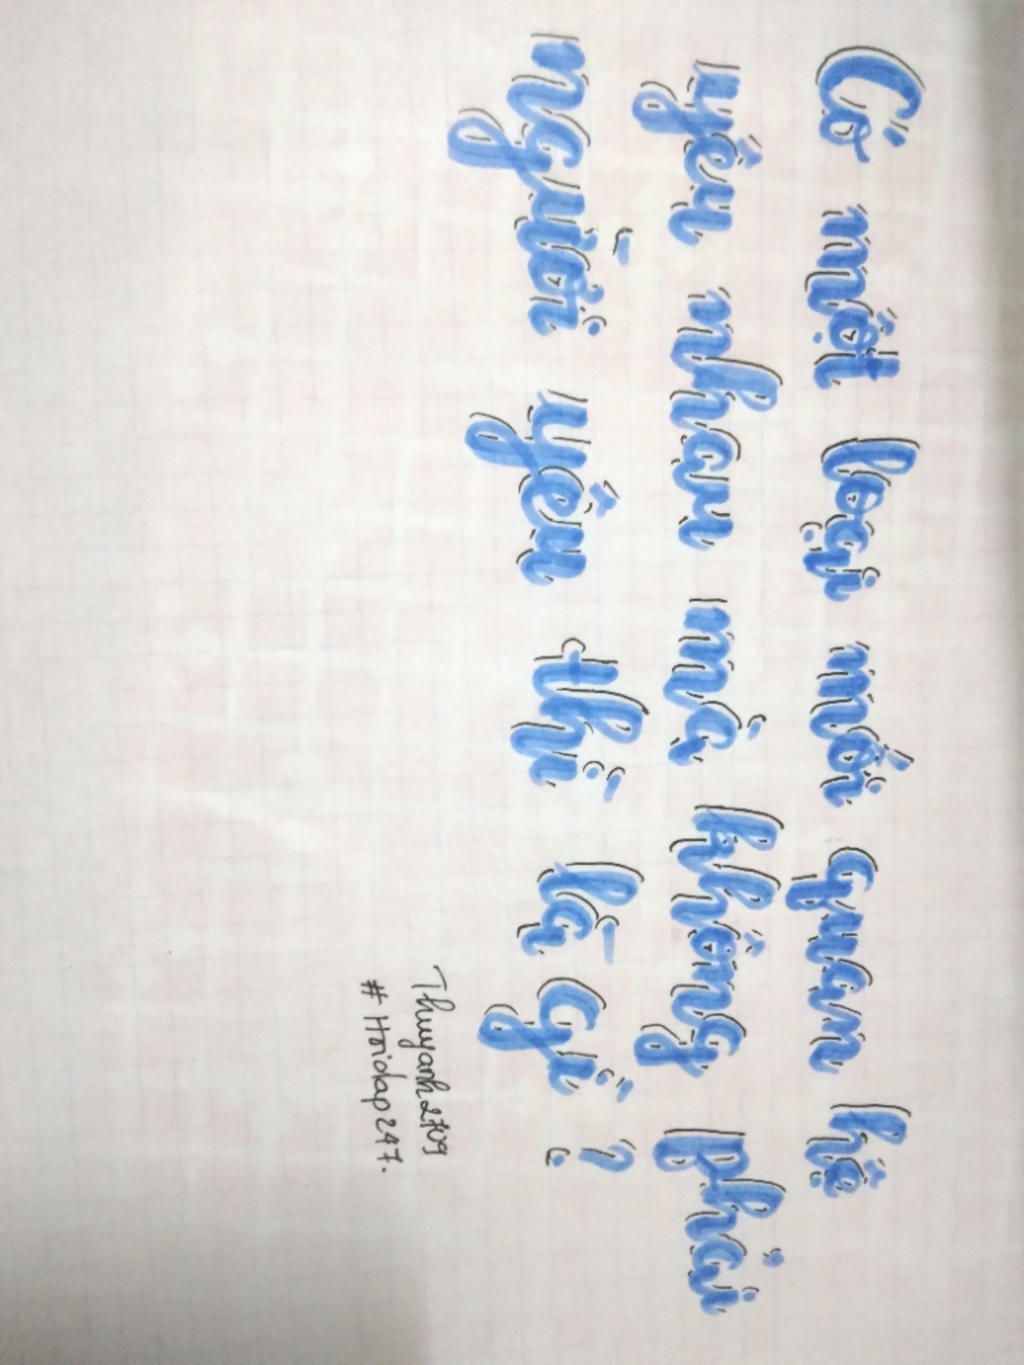 Có một loại mối quan hệ
yêu nhau mà không phải
người yêu thì là gì ?
Thuyanh2709
# Hoidap247.